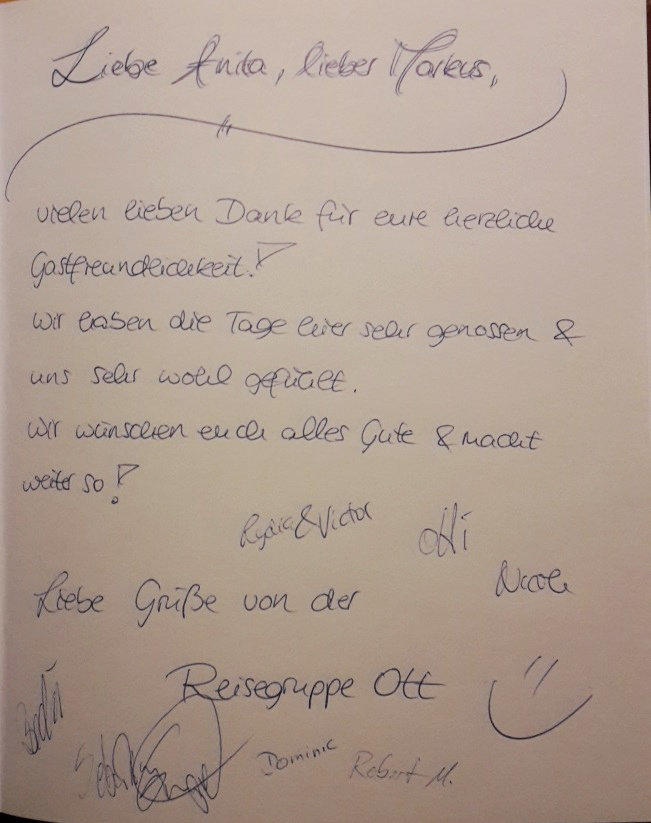 Liebe Anita, lieber Markus,
vielen lieben Dank für eure herzliche
Gastfreundlichkeit!
Wir haben die Tage hier sehr genossen &
uns sehr wohl gefühlt.
Wir wünschen euch alles Gute & macht
weiter so!
Lydia & Victor
Otti
Nicole
Liebe Grüße von der
Reisegruppe Ott
Dominic
Robert M.